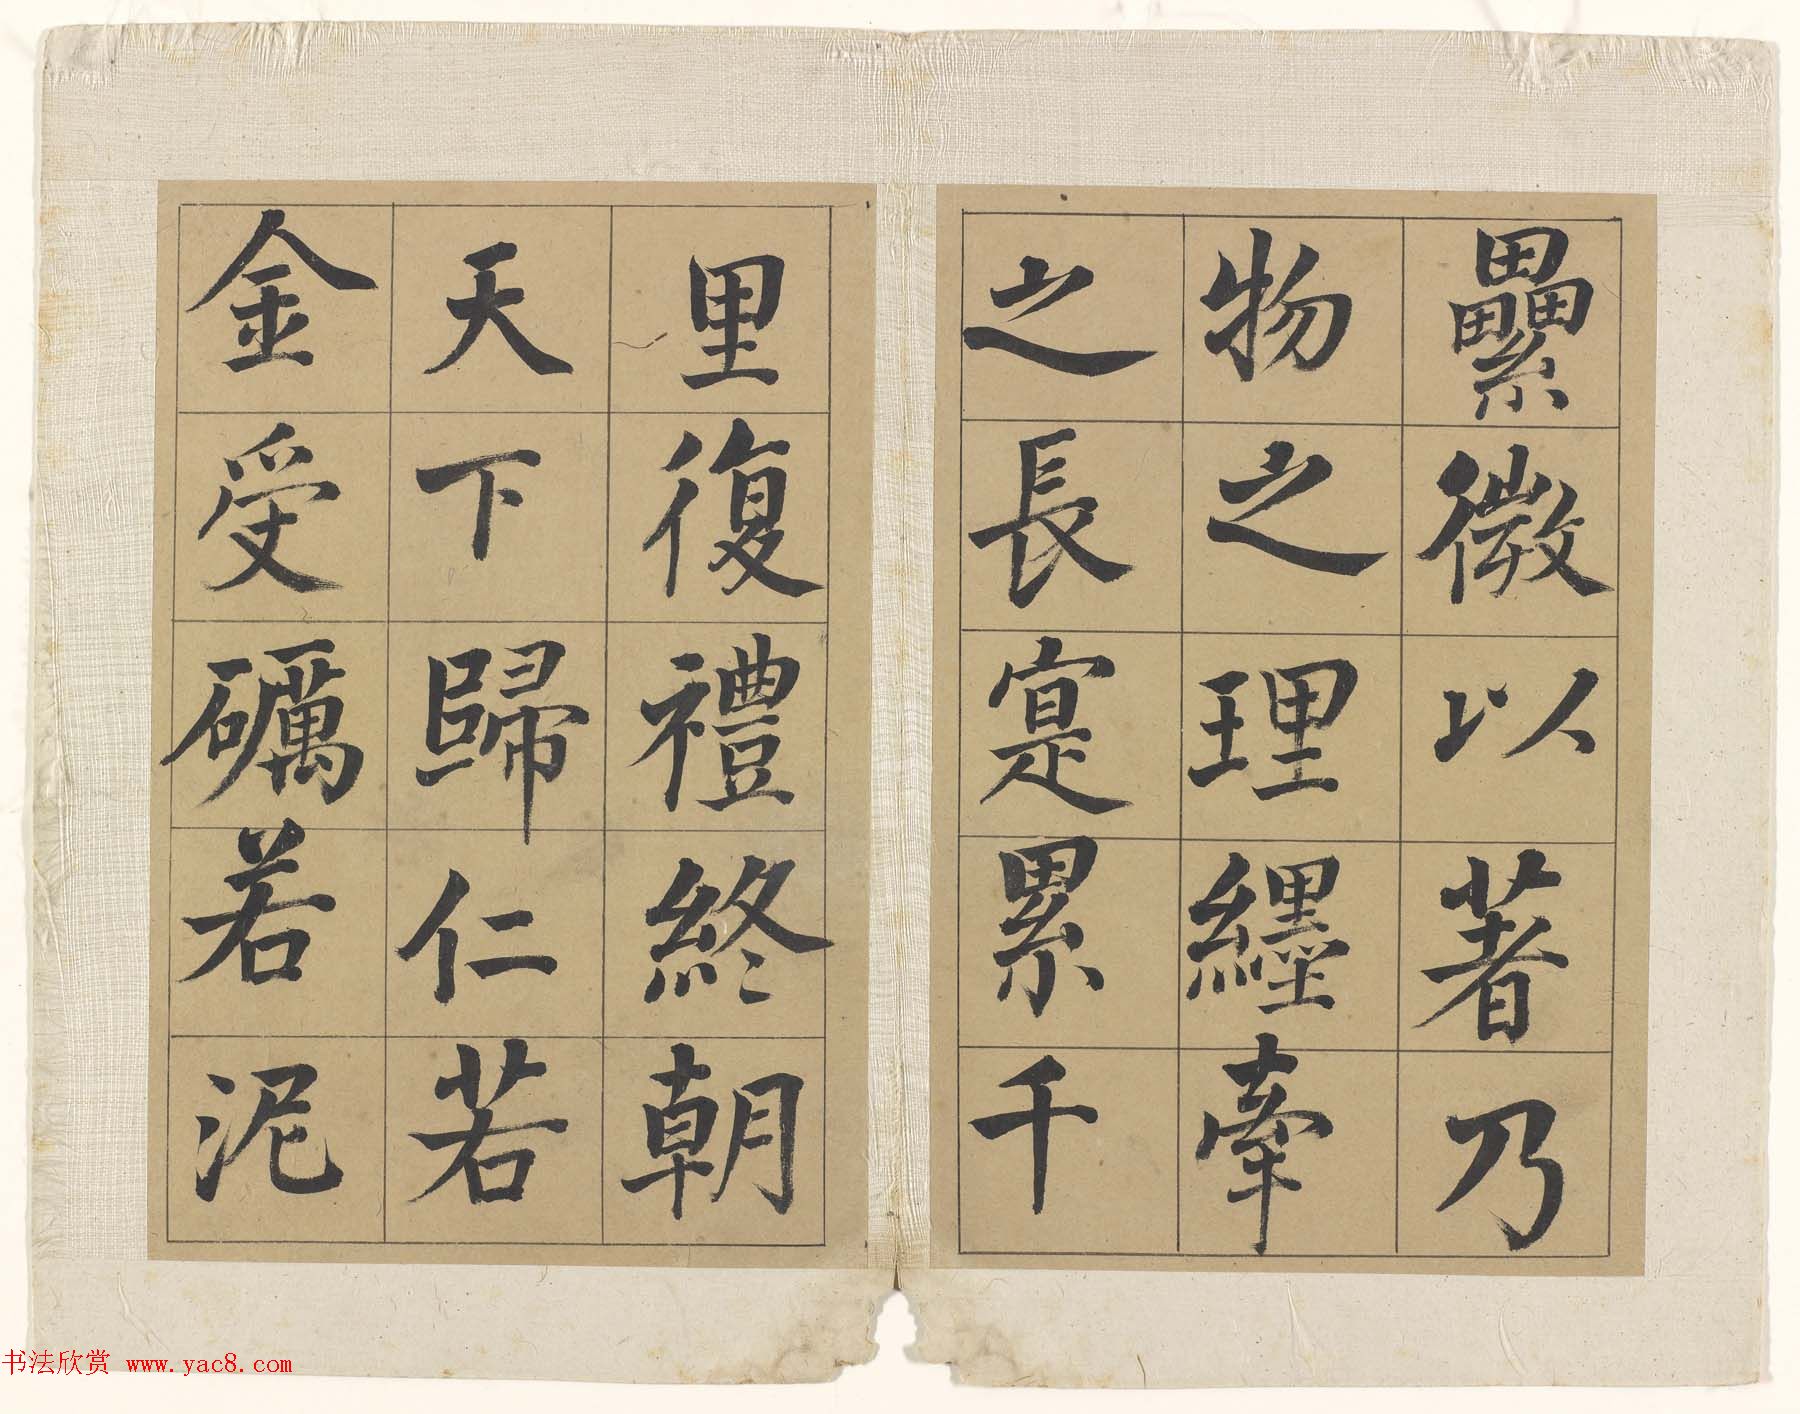 纍微以著乃
物之理纏牽
之長寔累千
里復禮終朝
天下歸仁若
金受礪若泥
书法欣赏 www.yac8.com